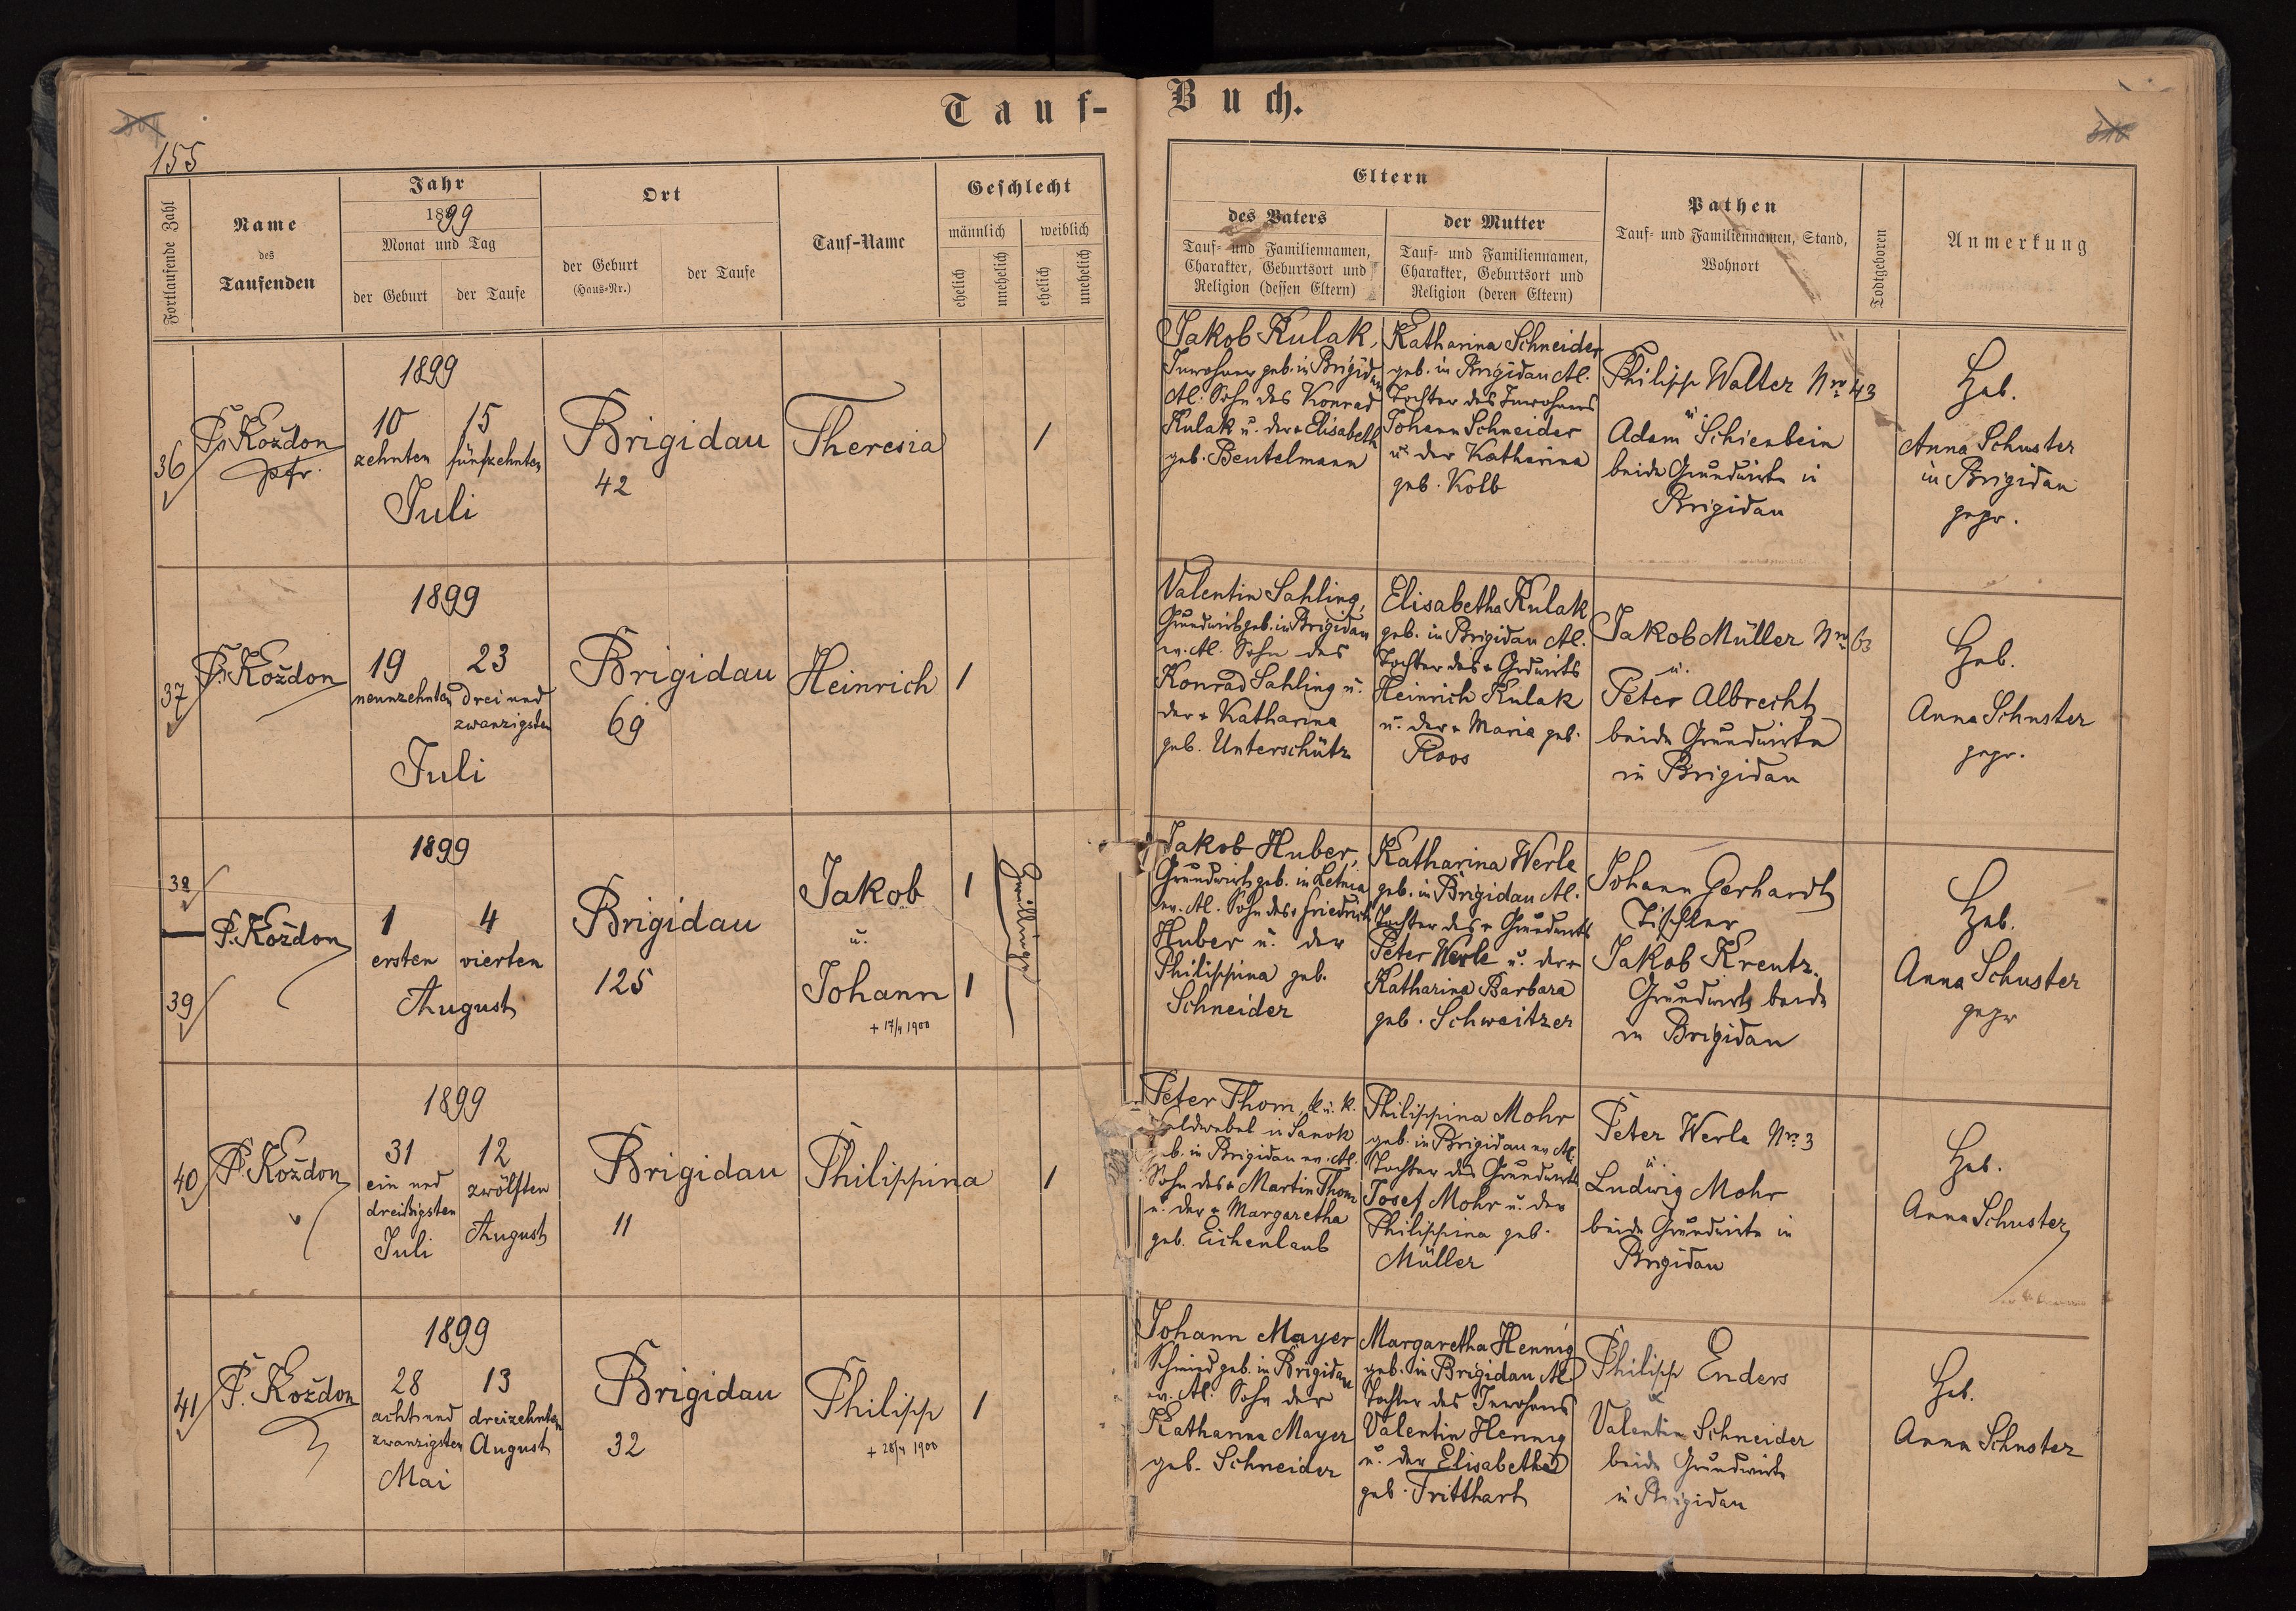 Tauf-Buch.
155
Fortlaufende Zahl
Name
des
Taufenden
Jahr
1899
Monat und Tag
der Geburt
der Taufe
Ort
der Geburt
(Haus-Nr.)
der Taufe
Tauf-Name
Geschlecht
männlich
weiblich
ehelich
unehelich
ehelich
unehelich
Eltern
des Vaters
Tauf- und Familiennamen,
Charakter, Geburtsort und
Religion (dessen Eltern)
der Mutter
Tauf- und Familiennamen,
Charakter, Geburtsort und
Religion (deren Eltern)
Pathen
Tauf- und Familiennamen, Stand,
Wohnort
Todtgeboren
Anmerkung
36
P. Koždon
Pfr.
1899
10
zehnten
15
fünfzehnten
Juli
Brigidau
42
Theresia
1
Jakob Kulak,
Inwohner geb. in Brigidau
Al. Sohn des Konrad
Kulak u. der + Elisabeth
geb. Beutelmann
Katharina Schneider
geb. in Brigidau Al.
Tochter des Inwohners
Johann Schneider
u. der Katharina
geb. Kolb
Philipp Walter Nro 43
u.
Adam Schienbein
beide Grundwirte in
Brigidau
Heb.
Anna Schuster
in Brigidau
gepr.
37
P. Koždon
1899
19
neunzehnten
23
drei und
zwanzigsten
Juli
Brigidau
69
Heinrich
1
Valentin Sahling,
Grundwirt geb. in Brigidau
ev. Al. Sohn des
Konrad Sahling u.
der + Katharina
geb. Unterschütz
Elisabetha Kulak
geb. in Brigidau Al.
Tochter des + Grdwirts
Heinrich Kulak
u. der + Maria geb.
Roos
Jakob Müller Nro 63
u.
Peter Albrecht
beide Grundwirte
in Brigidau
Heb.
Anna Schuster
gepr.
38
39
P. Koždon
1899
1
ersten
4
vierten
August
Brigidau
125
Jakob
u.
Johann
+ 17/4 1900
1
1
Zwillinge
Jakob Huber,
Grundwirt geb. in Letnia
ev. Al. Sohn des + Friedrich
Huber u. der
Philippina geb.
Schneider
Katharina Werle
geb. in Brigidau Al.
Tochter des + Grundwirts
Peter Werle u. der +
Katharina Barbara
geb. Schweitzer
Johann Gerhardt
Tischler
Jakob Kreutz.
Grundwirt beide
in Brigidau
Heb.
Anna Schuster
gepr
40
P. Koždon
1899
31
ein und
dreißigsten
Juli
12
zwölften
August
Brigidau
11
Philippina
1
Peter Thom, k. u. k.
Feldwebel in Sanok
geb. in Brigidau ev. Al.
Sohn des + Martin Thom
u. der + Margaretha
geb. Eichenlaub
Philippina Mohr
geb. in Brigidau ev Al.
Tochter des Grundwirts
Josef Mohr u. der
Philippina geb.
Müller
Peter Werle Nro 3
u.
Ludwig Mohr
beide Grundwirte in
Brigidau
Heb.
Anna Schuster
41
P. Koždon
1899
28
acht und
zwanzigsten
Mai
13
dreizehnten
August
Brigidau
32
Philipp
+ 28/4 1900
1
Johann Mayer
Schmied geb. in Brigidau
ev. Al. Sohn der
Katharina Mayer
geb. Schneider
Margaretha Hennig
geb. in Brigidau Al
Tochter des Inwohners
Valentin Hennig
u. der Elisabetha
geb. Tritthart
Philipp Enders
&
Valentin Schneider
beide Grundwirte
in Brigidau
Heb.
Anna Schuster